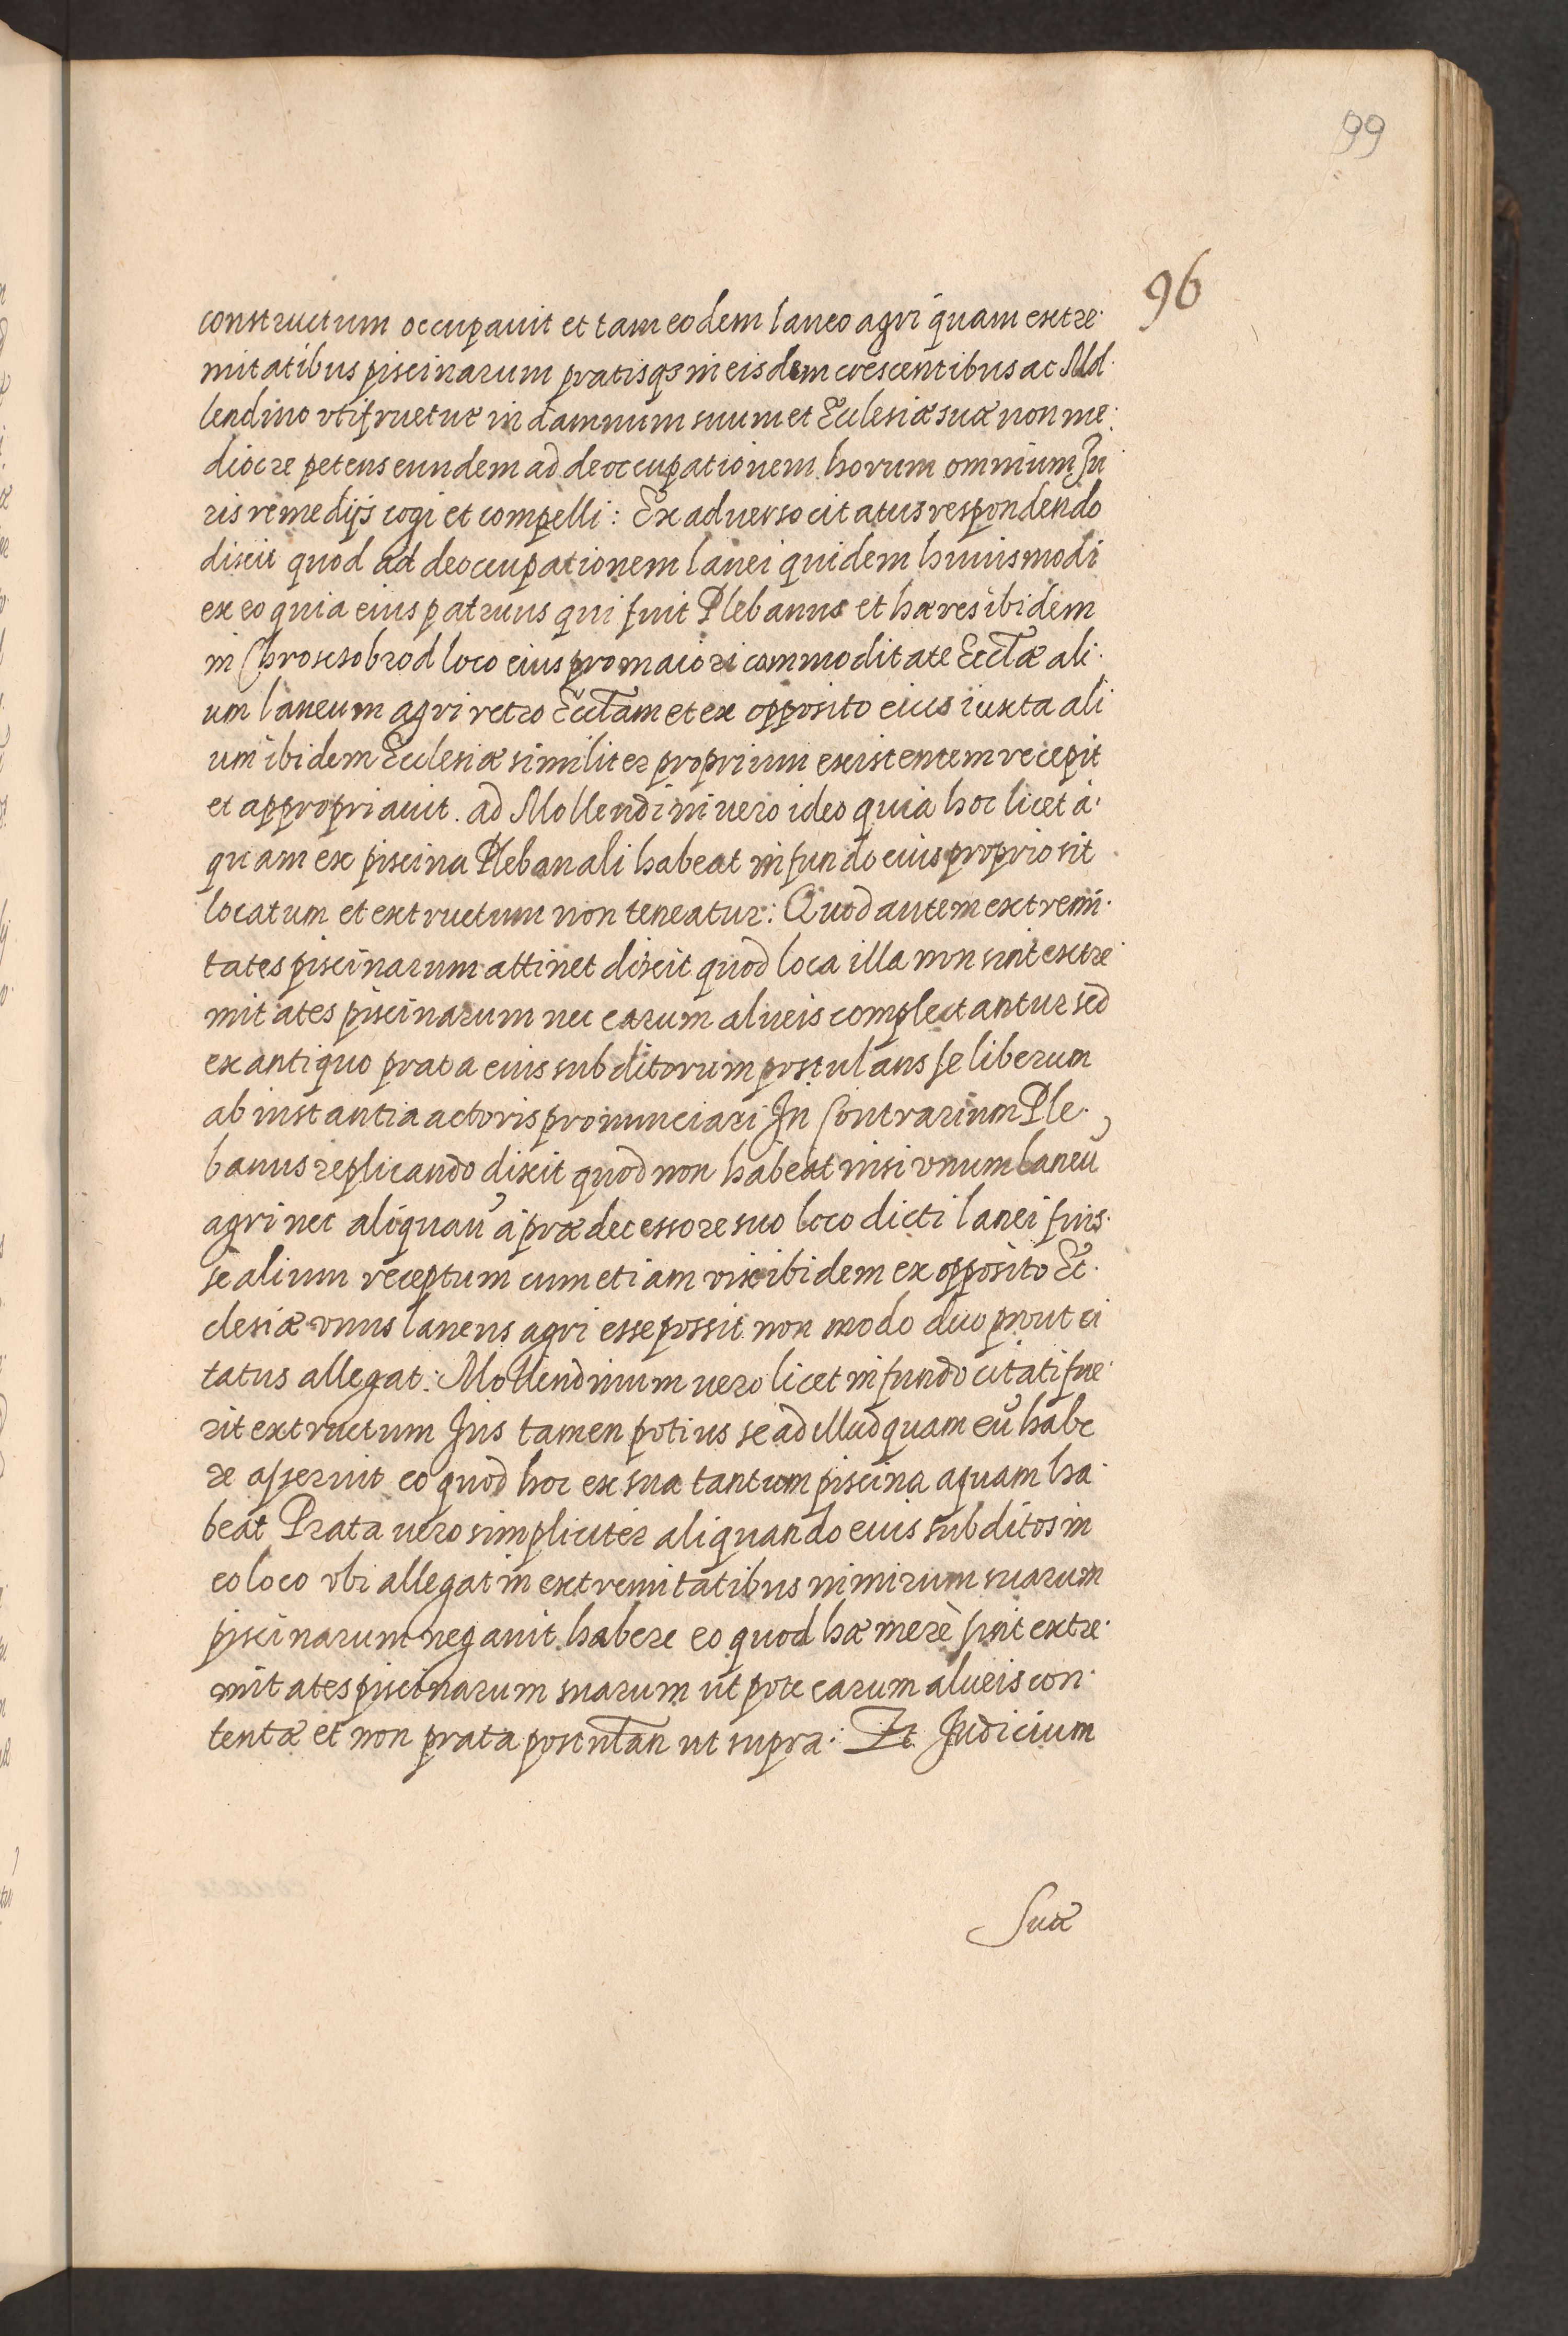 99
96
constructum occupauit et tam eodem laneo agri quam extre·
mitatibus piscinarum pratisqs in eisdem crescentibus ac Mol·
lendino vti fruetur in damnum suum et Ecclesiæ suæ non me:
diocre petens eundem ad deoccupationem horum omnium Ju
ris remedijs cogi et compelli: Ex aduerso citatus respondendo
dixit quod ad deoccupationem lanei quidem huiusmodi
ex eo quia eius patruus qui fuit Plebanus et hæres ibidem
in Chroscsobrod loco eius pro maiori commoditate Ecclæ ali·
um laneum agri retro Ecclam et ex opposito eius iuxta ali
um ibidem Ecclesiæ similiter proprium existentem recepit
et appropriauit. ad Mollendini uero ideo quia hoc licet a·
quam ex piscina Plebanali habeat in fundo eius proprio sit
locatum et extructum non teneatur: Quod autem extremi·
tates piscinarum attinet dixit quod loca illa non sint extre·
mitates piscinarum nec earum alueis complectantur sed
ex antiquo prata eius subditorum postulans se liberum
ab instantia actoris pronunciari In Contrarium Ple·
banus replicando dixit quod non habeat nisi vnum laneū
agri nec aliquaū à prædecessore suo loco dicti lanei fuis·
se alium receptum cum etiam vix ibidem ex opposito Ec·
clesiæ vnus laneus agri esse possit non modo duo prout ci
tatus allegat: Mollendinum uero licet in fundo citati fue·
rit extructum Jus tamen potius se ad illud quam eū habe
re asseruit eo quod hoc ex sua tantum piscina aquam ha·
beat Prata uero simpliciter aliquando eius subditos in
eo loco vbi allegat in extremitatibus nimirum suarum
piscinarum negauit habere eo quod hæ merè sint extre·
mitates piscinarum suarum ut pote earum alueis con·
tentæ et non prata postulan ut supra: Et Judicium
Suæ